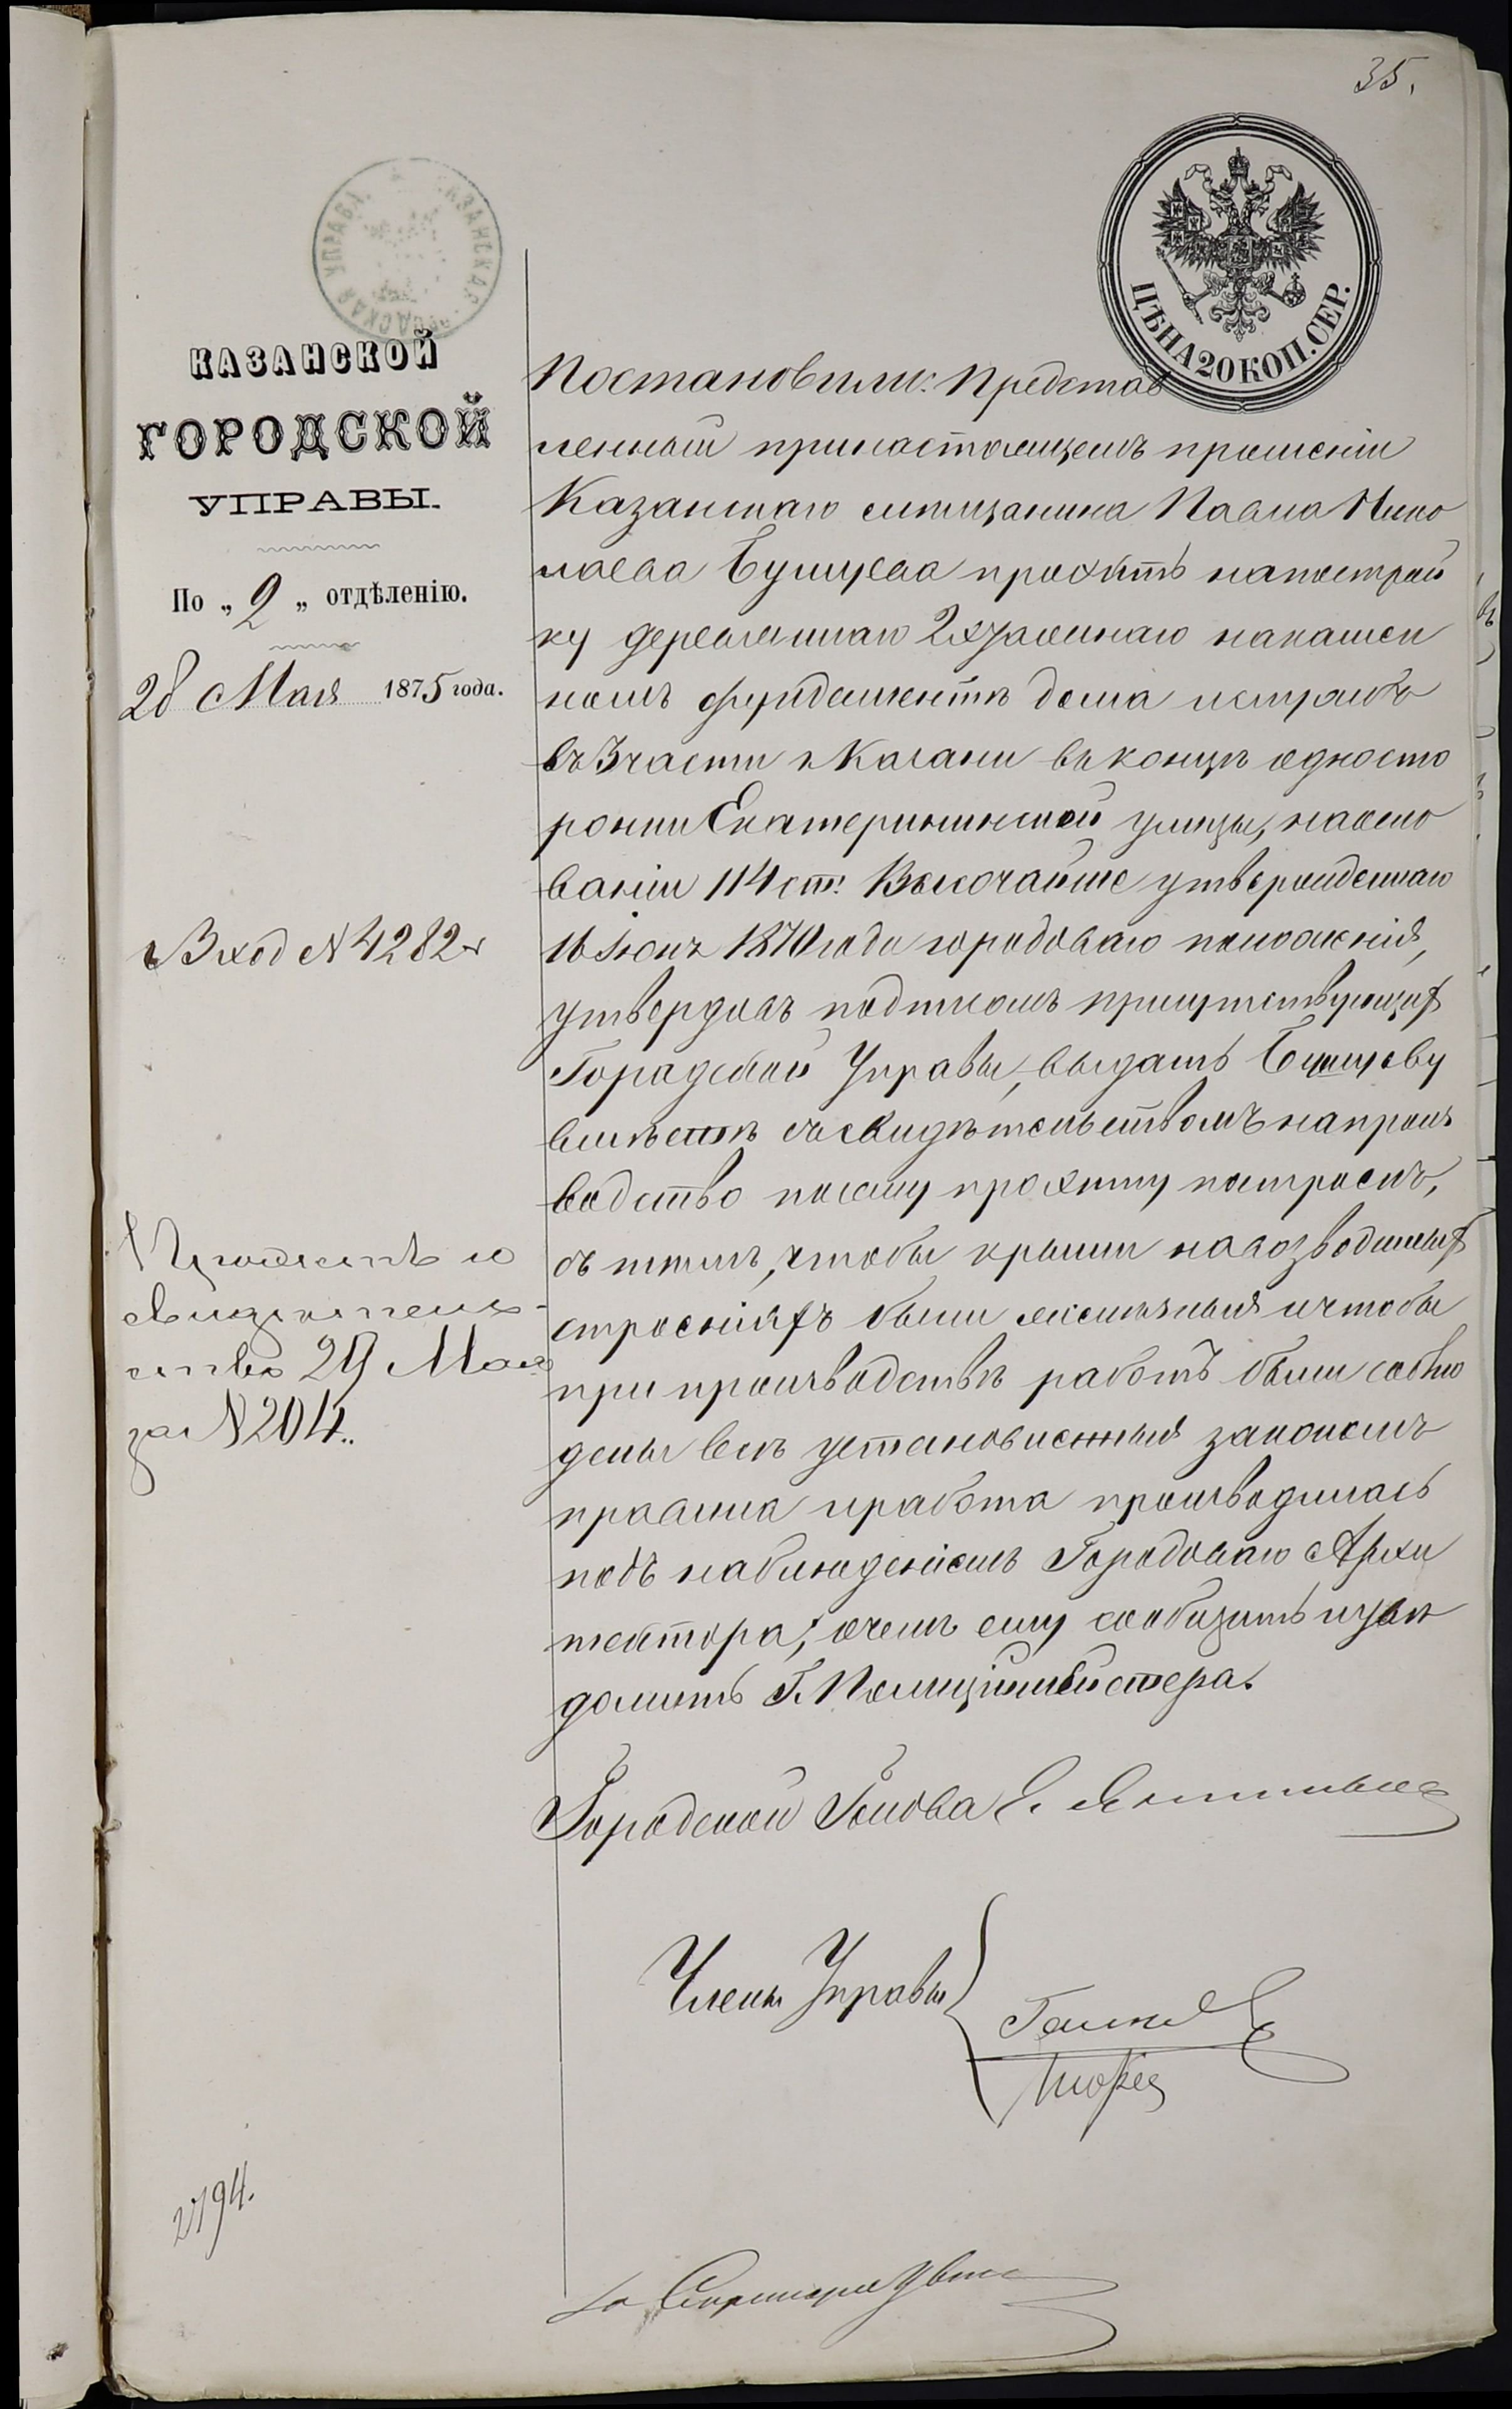 35.
КАЗАНСКАЯ ГОРОДСКАЯ УПРАВА
ЦѢНА 20 КОП. СЕР.
КАЗАНСКОЙ
ГОРОДСКОЙ
УПРАВЫ.
По „2„ отдѣленію.
28 Мая 1875 года.
Вход N 4282
Проэктъ и
свидѣтель-
ство 29 Мая
за N 204.
2794.
Постановили: Представ
ленный принастоящемъ прошеніи
Казанскаго мѣщанина Павла Нико
лаева Бушуева проэктъ напострой
ку деревяннаго 2хэтажнаго накамен
номъ фундаментѣ дома
въ 3 части г. Казани въ концѣ односто
ронни Екатерининской улицы, наосно
ваніи 114 ст. Высочайше утвержденнаго
16 Іюня 1870 года городоваго положенія,
утвердивъ подписомъ присутствующих
Городской Управы, выдать Бушуеву
вмѣстѣ съ свидѣтельствомъ напроиз
водство посему проэкту построекъ,
съ тѣмъ, чтобы крыши навозводимых
строеніяхъ были желѣзныя ичтобы
при производствѣ работъ были соблю
дены всѣ установленныя закономъ
правила иработа производилась
подъ наблюденіемъ Городоваго Архи
тектора; очемъ ему сообщить иувѣ
домить Г. Полиціймейстера.
Городской Голова Е.
Члены Управы
Секретаря